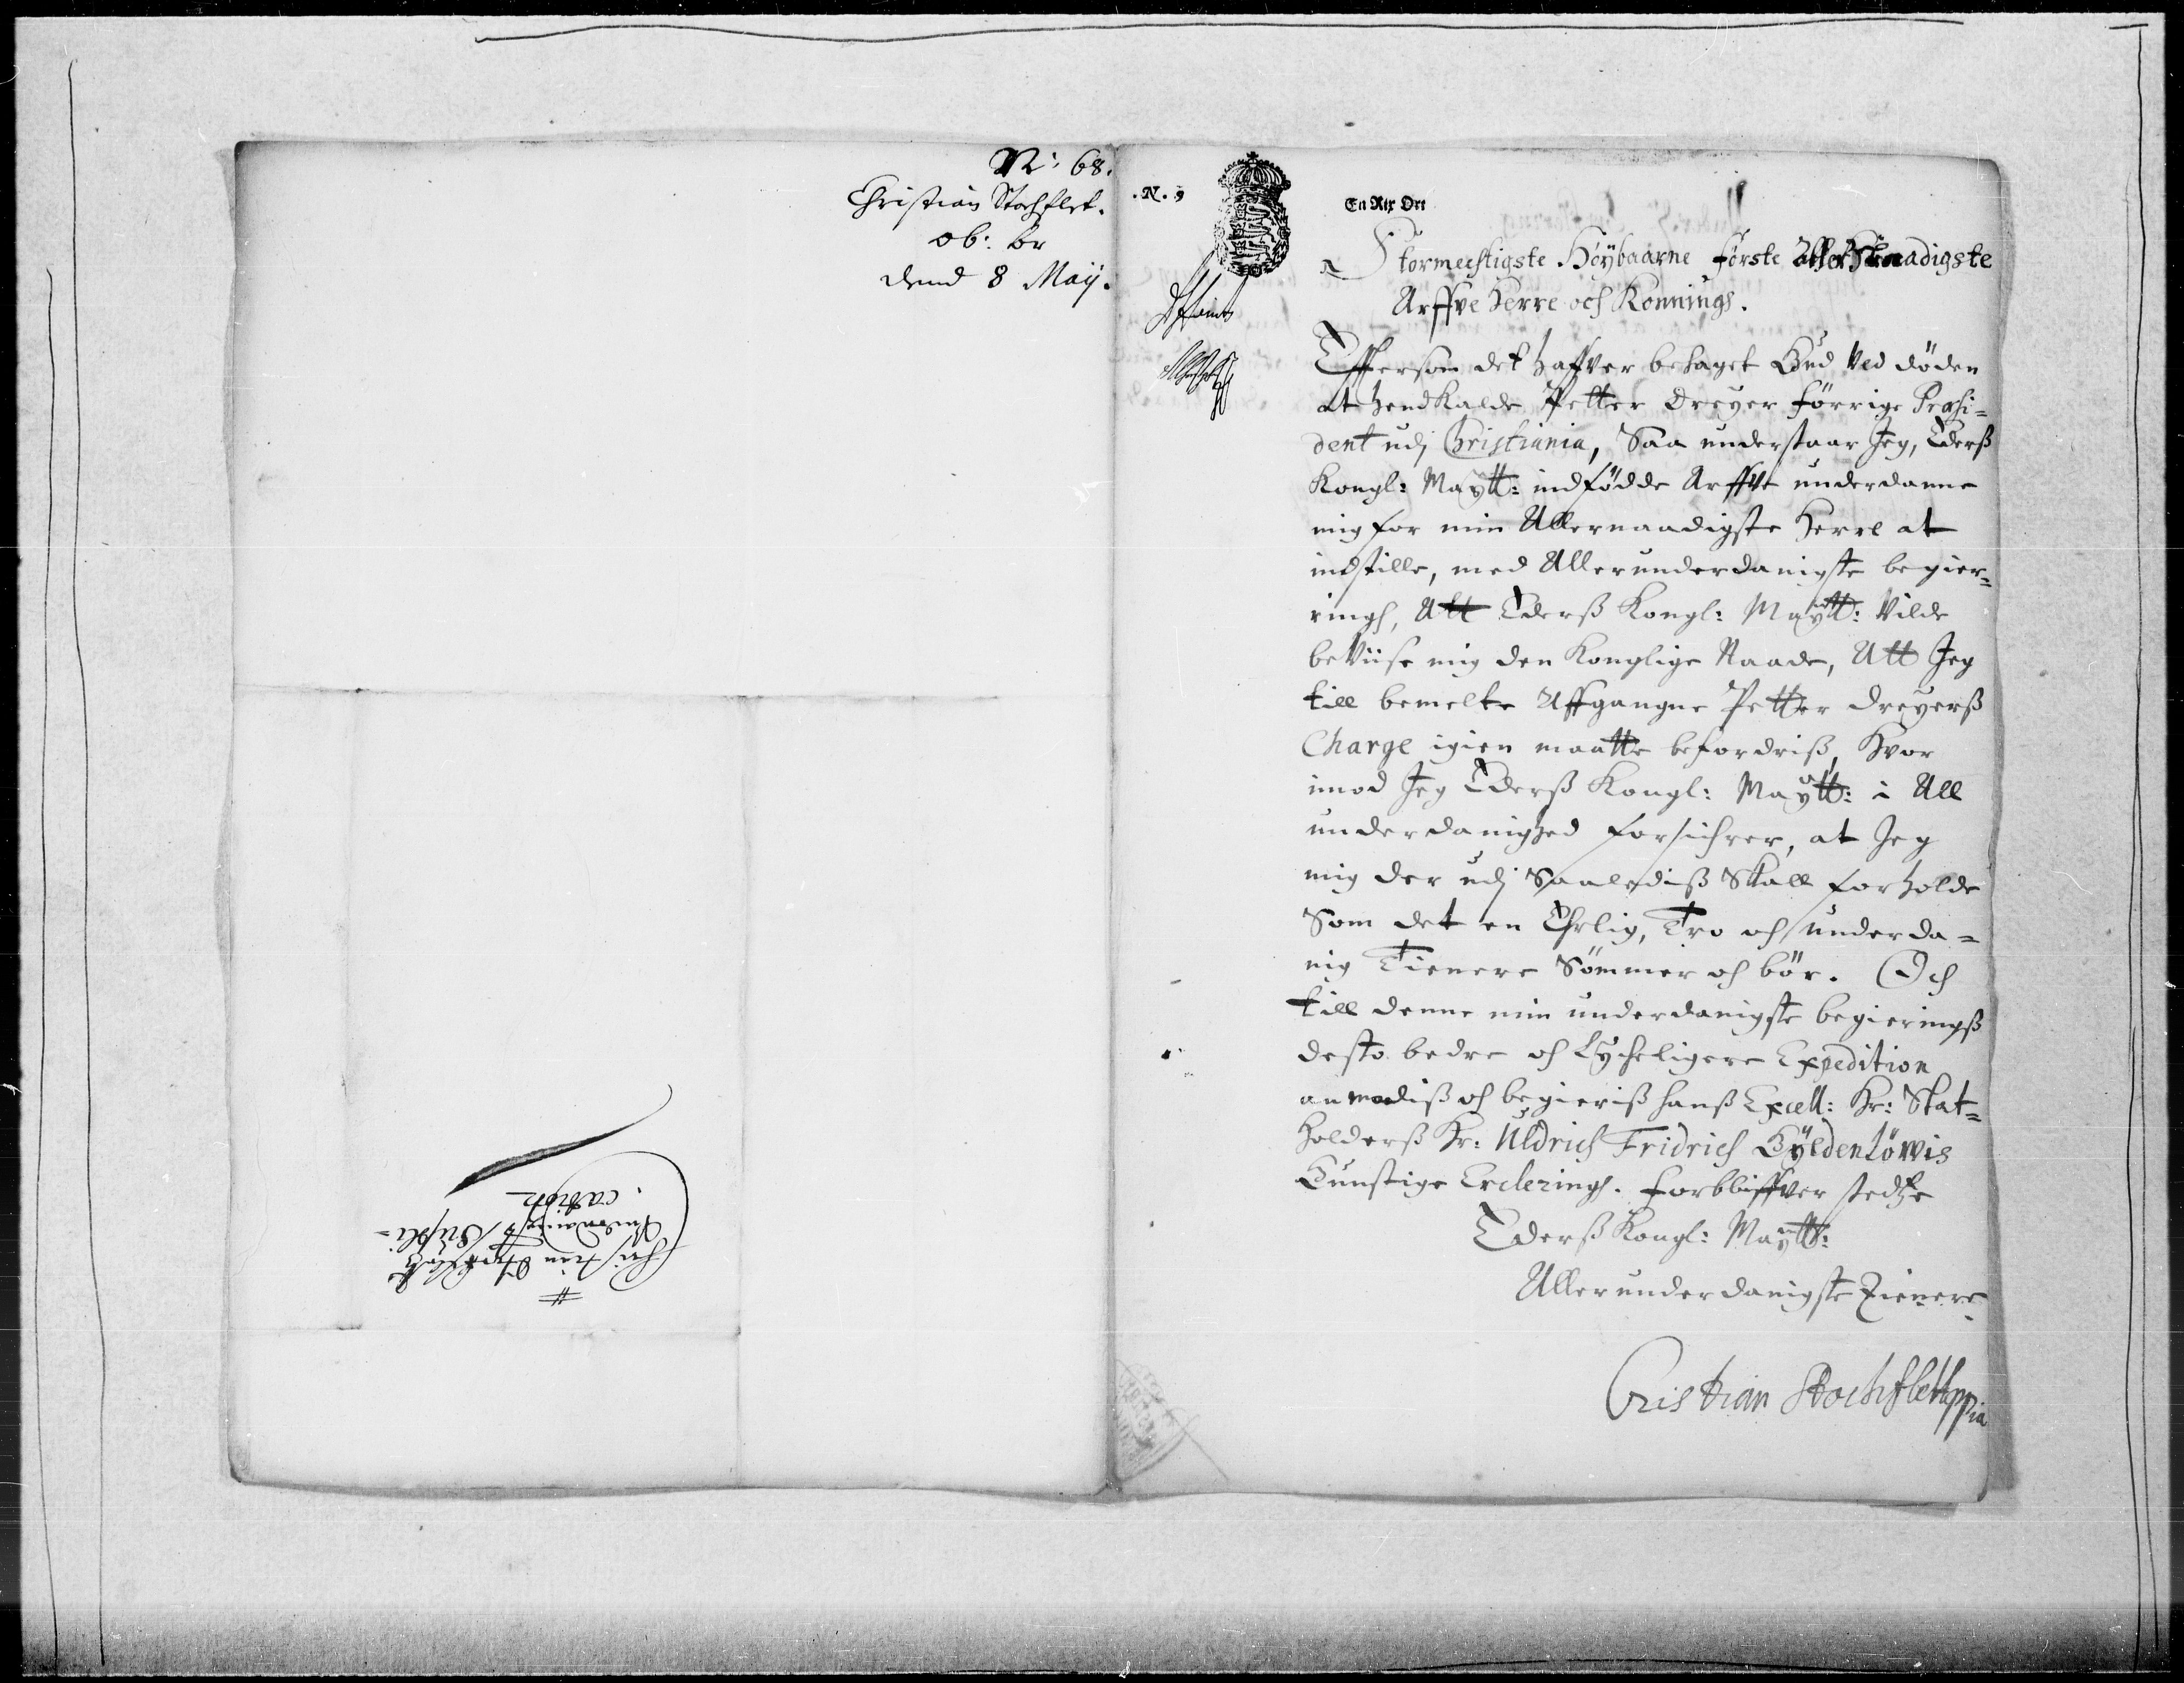 N: 68.
Christian Stochflet.
ob: br
dend 8 Maij.
Christian Stochfletz
Underdanigste Suppli-
cation.
.N. 9
En Rix Ort
Stormectigste Høÿbaarne Første Aller Naadigste
Arffve Herre och Konnings.
Effterson det haffver behaget Gud Ved døden
at hendkalde Petter Dreyer förrige Præsi=
dent udj Christiania, Saa understaar Jeg, Ederß
Kongl: Maÿtt: indfødde Arffve underdanne
mig for min Allernaadigste Herre at
indstille, med Allerunderdanigste begier=
ingh, Att Ederß Kongl: Maÿtt: Vilde
beViise mig den Konglige Naade, Att Jeg
till bemelte Affgangne Petter Dreyerß
Charge igien maatte befordriß, Hvor
imod Jeg Ederß Kongl: Maÿtt: i All
underdanighed forsichrer, at Jeg
mig der udj Saalediß Skall forholde
Som det en Ehrlig, Tro och underda=
nig Tienere Sömmer och bör. Och
till denne min underdanigste begieringß
desto bedre och Lycheligere Expedition
anmodiß och begieriß hanß Excell: Hr: Stat=
holderß Hr: Uldrich Fridrich Gÿldenlöwis
Gunstige Ercleringh. Forbliffver stedtze
Ederß Kongl: Maÿtt:
Allerunderdanigste Tienere
Cristian Stochfleth ppia